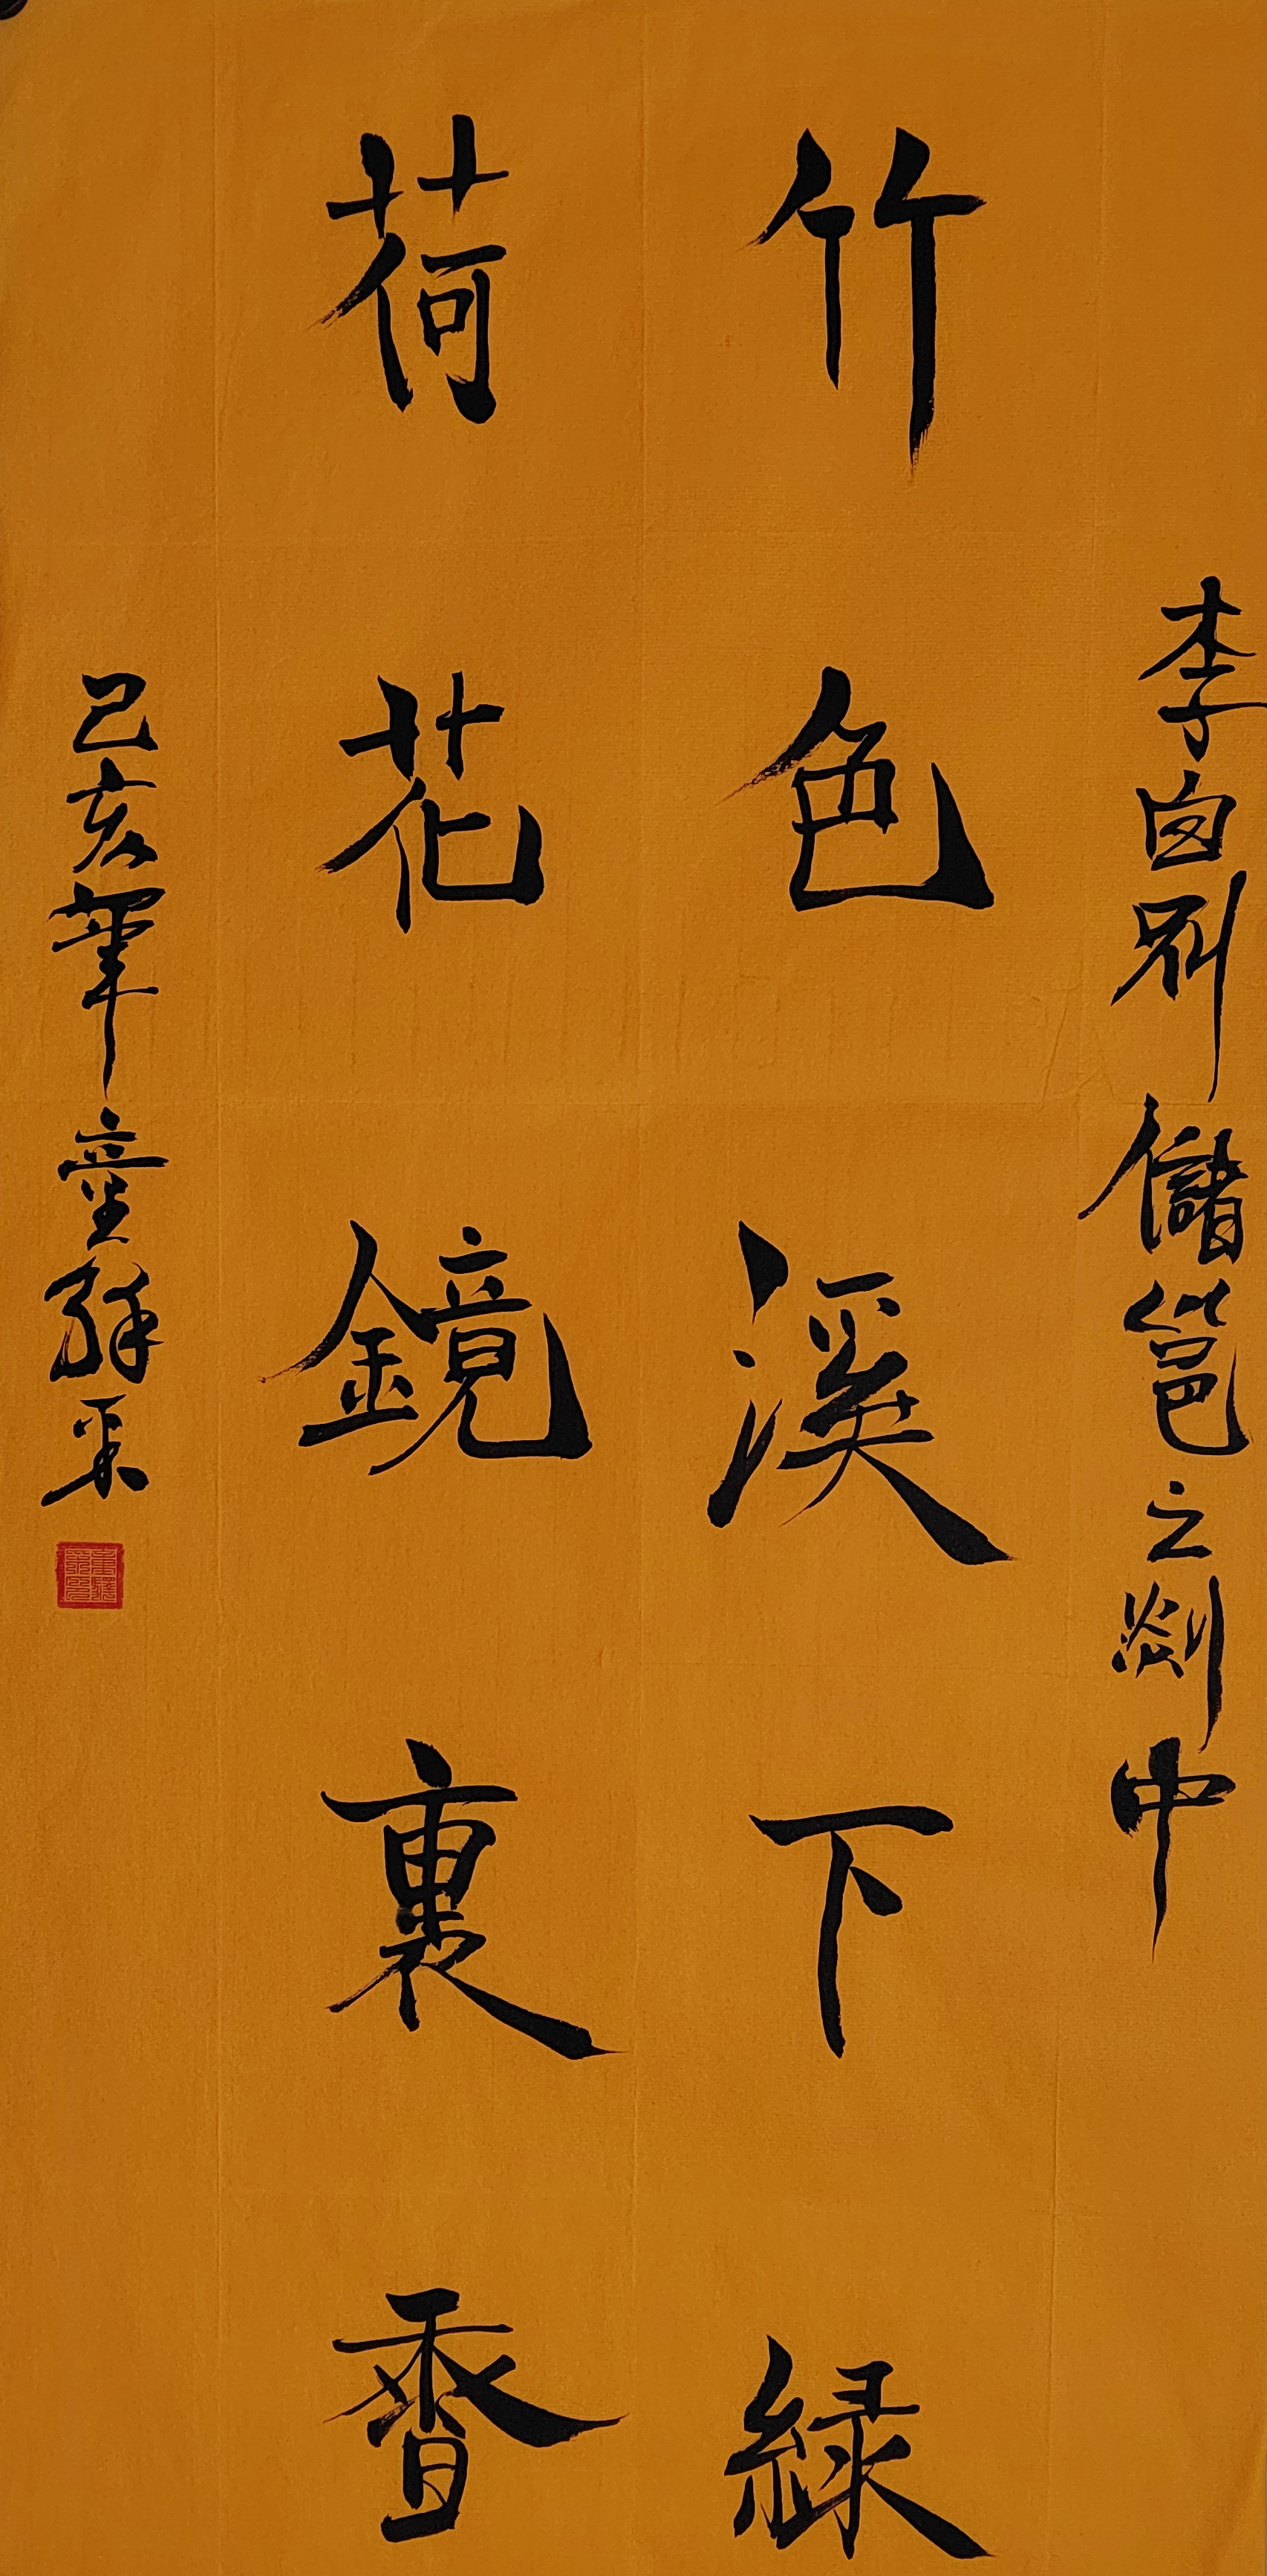 李白別儲邕之剡中
竹色溪下綠
荷花鏡裏香
己亥筆童繹采